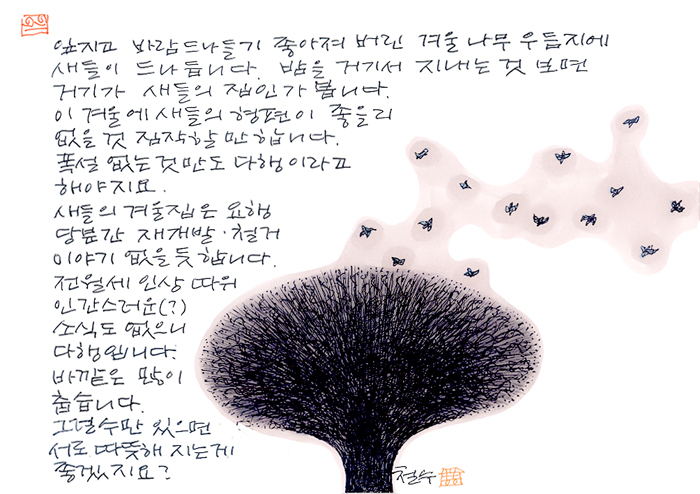 잎지고 바람드나들기 좋아져 버린 겨울 나무 우듬지에
새들이 드나듭니다. 밤을 거기서 지내는 것 보면
거기가 새들의 집인가 봅니다.
이 겨울에 새들의 형편이 좋을리
없을 것 짐작할 만 합니다.
폭설 없는 것만도 다행이라고
해야지요.
새들의 겨울집은 요행
당분간 재개발·철거
이야기 없을 듯 합니다.
전월세 인상 따위
인간스러운(?)
소식도 없으니
다행입니다.
바깥은 많이
춥습니다.
그럴수만 있으면
서로 따뜻해 지는게
좋겠지요?
철수